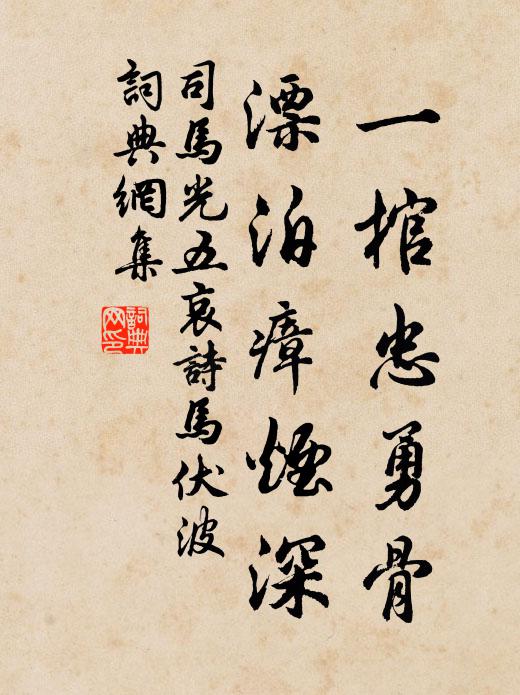 一棺忠勇骨
漂泊瘴煙深
司馬光五哀詩馬伏波
詞典網集
詞典网印